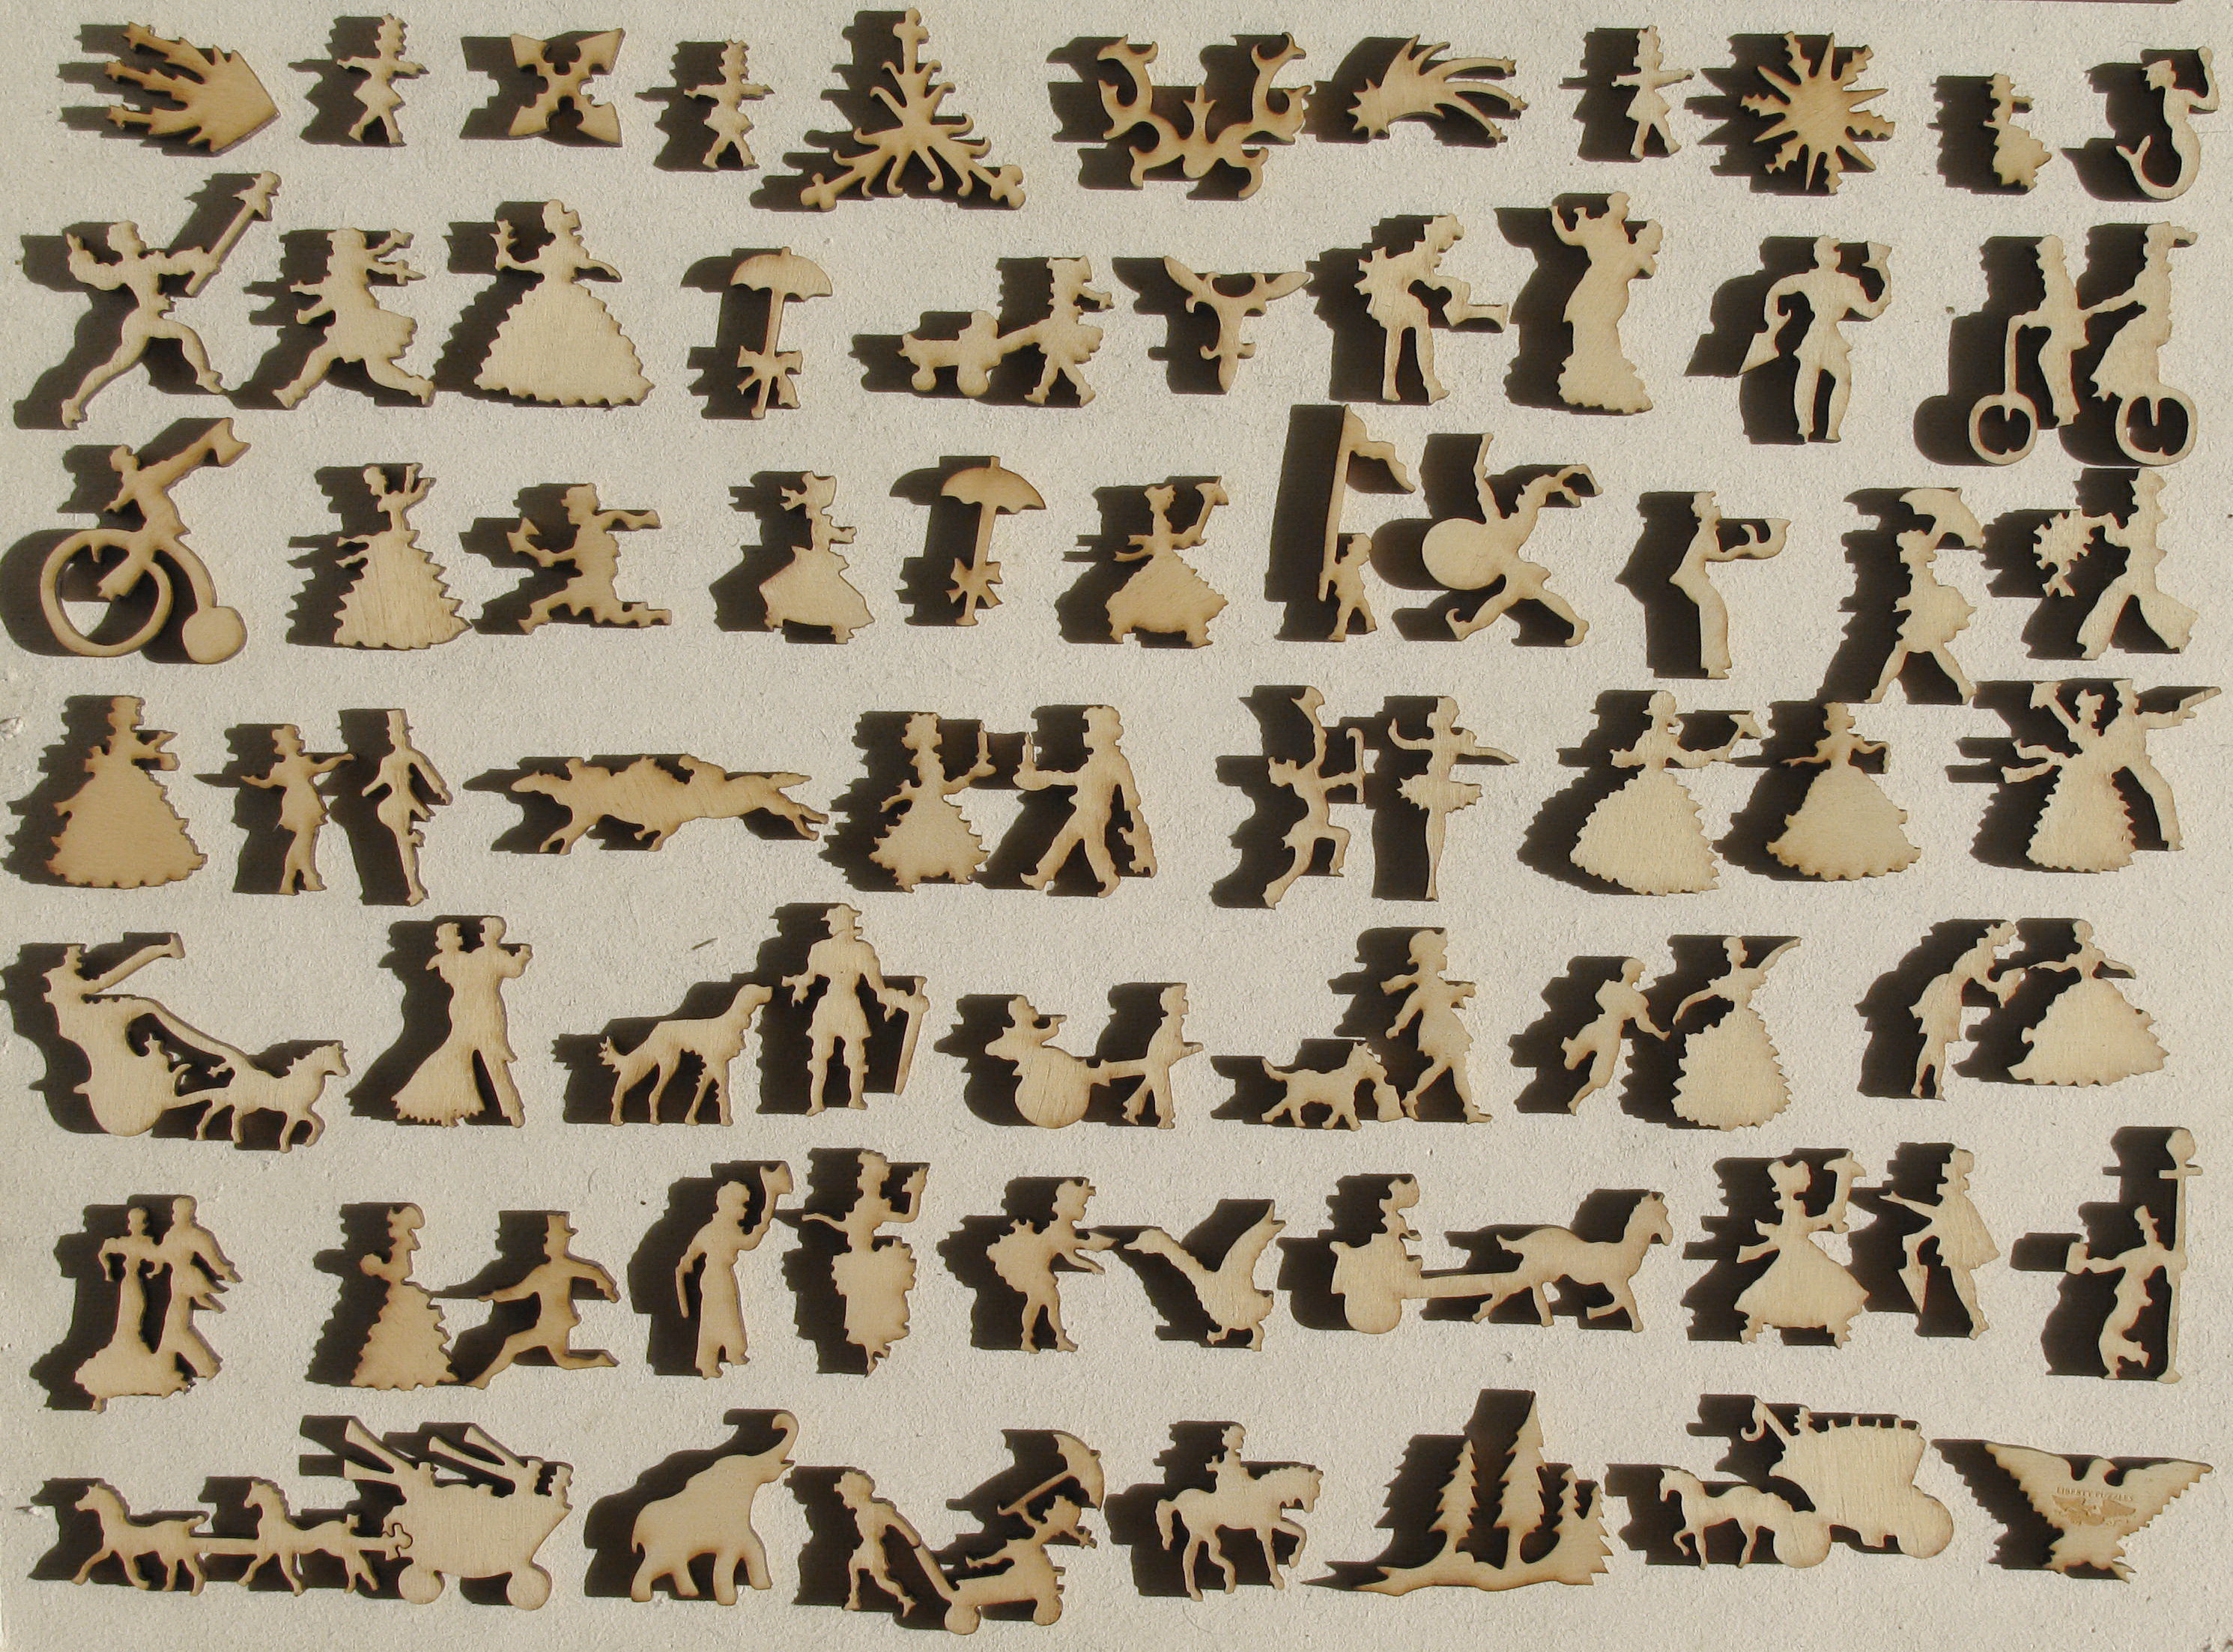 LIBERTY PUZZLES